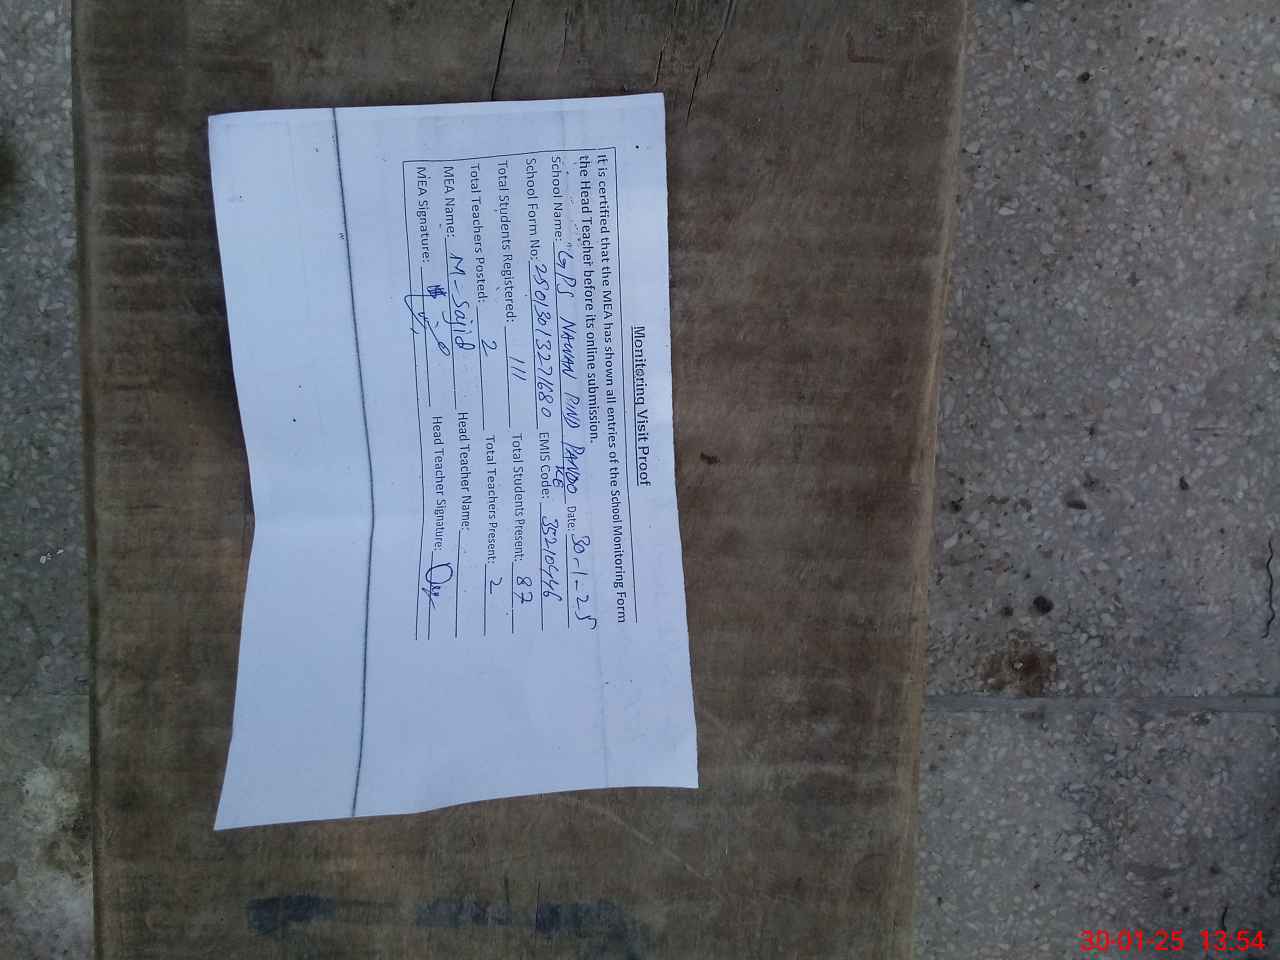 Monitoring Visit Proof
It is certified that the MEA has shown all entries of the School Monitoring Form
the Head Teacher before its online submission.
School Name: GPS NAWAN PIND PANDO KE Date: 30-1-25
School Form No: 25013013271680 EMIS Code: 35210446
Total Students Registered: 111 Total Students Present: 87
Total Teachers Posted: 2 Total Teachers Present: 2
MEA Name: M-Sajid Head Teacher Name:
MEA Signature: Head Teacher Signature:
30-01-25 13:54